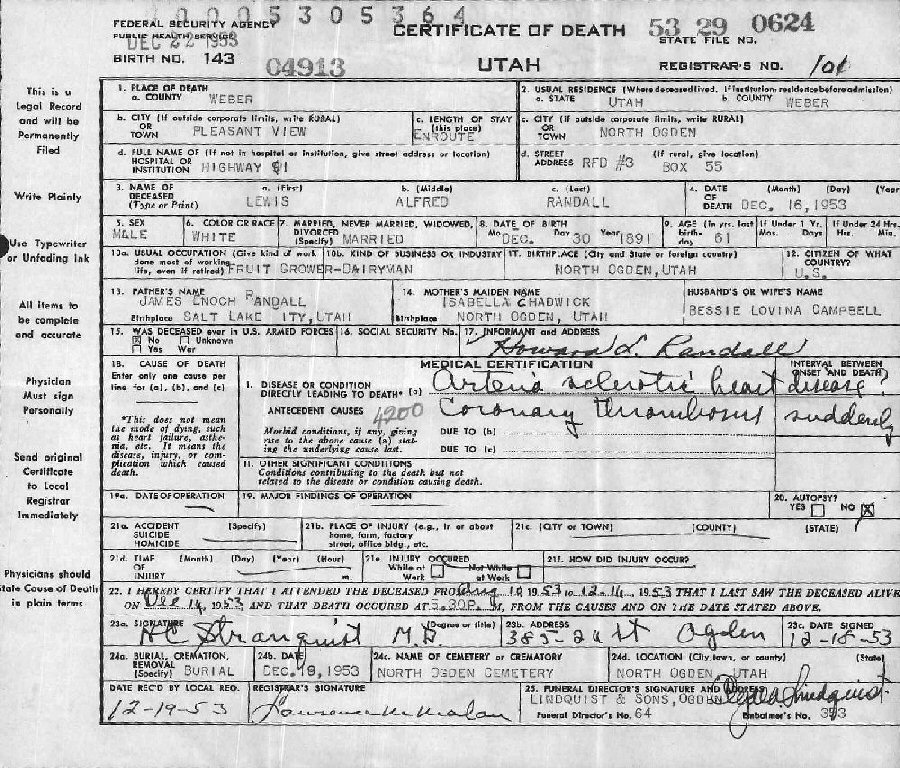 00005305364
FEDERAL SECURITY AGENCY
PUBLIC HEALTH SERVICE
DEC 22 1953
BIRTH NO. 143
04913
CERTIFICATE OF DEATH
UTAH
53 29 0624
STATE FILE NO.
REGISTRAR'S NO. 101
This is a
Legal Record
and will be
Permanently
Filed
Write Plainly
Use Typewriter
or Unfading Ink
All items to
be complete
and accurate
Physician
Must sign
Personally
Send original
Certificate
to Local
Registrar
Immediately
Physicians should
State Cause of Death
in plain terms
1. PLACE OF DEATH
a. COUNTY WEBER
2. USUAL RESIDENCE (Where deceased lived. If institution-residence before admission)
a. STATE UTAH b. COUNTY WEBER
b. CITY (If outside corporate limits, write RURAL)
OR
TOWN PLEASANT VIEW
c. LENGTH OF STAY
(this place)
ENROUTE
c. CITY (If outside corporate limits, write RURAL)
OR
TOWN NORTH OGDEN
d. FULL NAME OF (If not in hospital or institution, give street address or location)
HOSPITAL OR
INSTITUTION HIGHWAY 91
d. STREET (If rural, give location)
ADDRESS RFD #3 BOX 55
3. NAME OF
DECEASED
(Type or Print)
a. (First) b. (Middle) c. (Last)
LEWIS ALFRED RANDALL
4. DATE (Month) (Day) (Year)
OF
DEATH DEC. 16, 1953
5. SEX
MALE
6. COLOR OR RACE
WHITE
7. MARRIED, NEVER MARRIED, WIDOWED,
DIVORCED
(Specify) MARRIED
8. DATE OF BIRTH
Mo. DEC. Day 30 Year 1891
9. AGE (In yrs. last birthday) 61
If Under 1 Yr. Mos. Days
If Under 24 Hrs. Hrs. Min.
10a. USUAL OCCUPATION (Give kind of work
done most of working
life, even if retired) FRUIT GROWER-DAIRYMAN
10b. KIND OF BUSINESS OR INDUSTRY
11. BIRTHPLACE (City and State or foreign country)
NORTH OGDEN, UTAH
12. CITIZEN OF WHAT
COUNTRY?
U.S.
13. FATHER'S NAME
JAMES ENOCH RANDALL
Birthplace SALT LAKE ITY, UTAH
14. MOTHER'S MAIDEN NAME
ISABELLA CHADWICK
Birthplace NORTH OGDEN, UTAH
HUSBAND'S OR WIFE'S NAME
BESSIE LOVINA CAMPBELL
15. WAS DECEASED ever in U.S. ARMED FORCES
X No Unknown
Yes War
16. SOCIAL SECURITY No.
17. INFORMANT and ADDRESS
Howard L. Randall
18. CAUSE OF DEATH
Enter only one cause per
line for (a), (b), and (c)
*This does not mean
the mode of dying, such
as heart failure, asthe-
nia, etc. It means the
disease, injury, or com-
plication which caused
death.
MEDICAL CERTIFICATION
INTERVAL BETWEEN
ONSET AND DEATH
I. DISEASE OR CONDITION
DIRECTLY LEADING TO DEATH* (a) Arterio sclerotic heart disease ?
ANTECEDENT CAUSES 4200 Coronary thrombosis suddenly
Morbid conditions, if any, giving
rise to the above cause (a) stat-
ing the underlying cause last.
DUE TO (b)
DUE TO (c)
11. OTHER SIGNIFICANT CONDITIONS
Conditions contributing to the death but not
related to the disease or condition causing death.
19a. DATE OF OPERATION
19. MAJOR FINDINGS OF OPERATION
20. AUTOPSY?
YES NO X
21a. ACCIDENT (Specify)
SUICIDE
HOMICIDE
21b. PLACE OF INJURY (e.g., in or about
home, farm, factory
street, office bldg., etc.
21c. (CITY or TOWN) (COUNTY) (STATE)
21d. TIME (Month) (Day) (Year) (Hour)
OF
INJURY m.
21e. INJURY OCCURED
While at Work Not While at Work
21f. HOW DID INJURY OCCUR?
22. I HEREBY CERTIFY THAT I ATTENDED THE DECEASED FROM Aug 10 1953 TO 12-16, 1953 THAT I LAST SAW THE DECEASED ALIVE
ON Dec 14, 1953 AND THAT DEATH OCCURED AT 5:30P M, FROM THE CAUSES AND ON THE DATE STATED ABOVE.
23a. SIGNATURE (Degree or title)
H C Stranquist M.D.
23b. ADDRESS
385-24 st Ogden
23c. DATE SIGNED
12-18-53
24a. BURIAL, CREMATION,
REMOVAL
(Specify) BURIAL
24b. DATE
DEC. 19, 1953
24c. NAME OF CEMETERY or CREMATORY
NORTH OGDEN CEMETERY
24d. LOCATION (City, town, or county) (State)
NORTH OGDEN, UTAH
DATE REC'D BY LOCAL REG.
12-19-53
REGISTRAR'S SIGNATURE
25. FUNERAL DIRECTOR'S SIGNATURE AND ADDRESS
LINDQUIST & SONS, OGDEN
Lindquist
Funeral Director's No. 64
Embalmer's No. 353